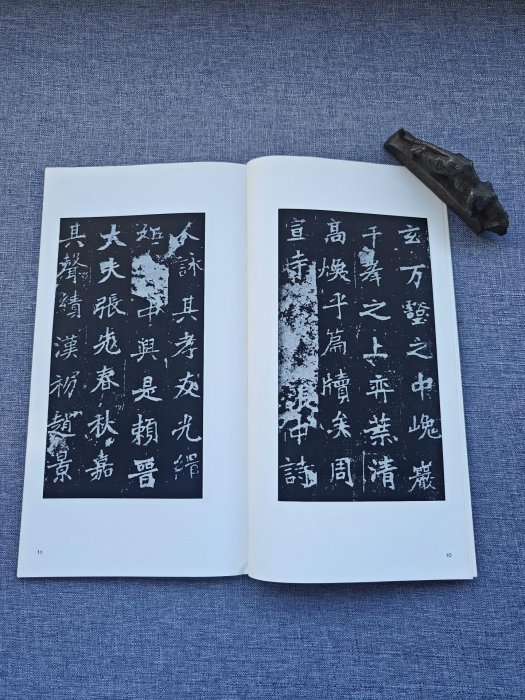 玄万壑之中巉巖
千峯之上弈葉清
高煥乎篇牘矣周
宣時張仲詩
10
人詠其孝友光緝
姬中興是賴晉
大夫張老春秋嘉
其聲績漢初趙景
11